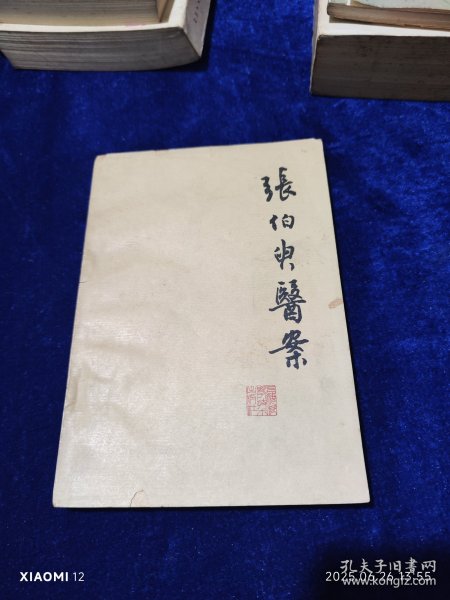 張伯臾醫案
XIAOMI 12
2025.06.26 13:55
孔夫子旧書网
www.kongfz.com